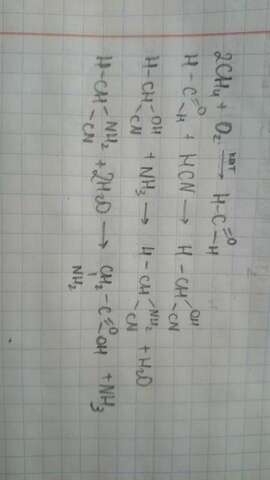 2CH₄ + O₂ →кат H–C(=O)–H
H–C(=O)–H + HCN → H–CH(OH)–CN
H–CH(OH)–CN + NH₃ → H–CH(NH₂)–CN + H₂O
H–CH(NH₂)–CN + 2H₂O → CH₂(NH₂)–C(=O)–OH + NH₃